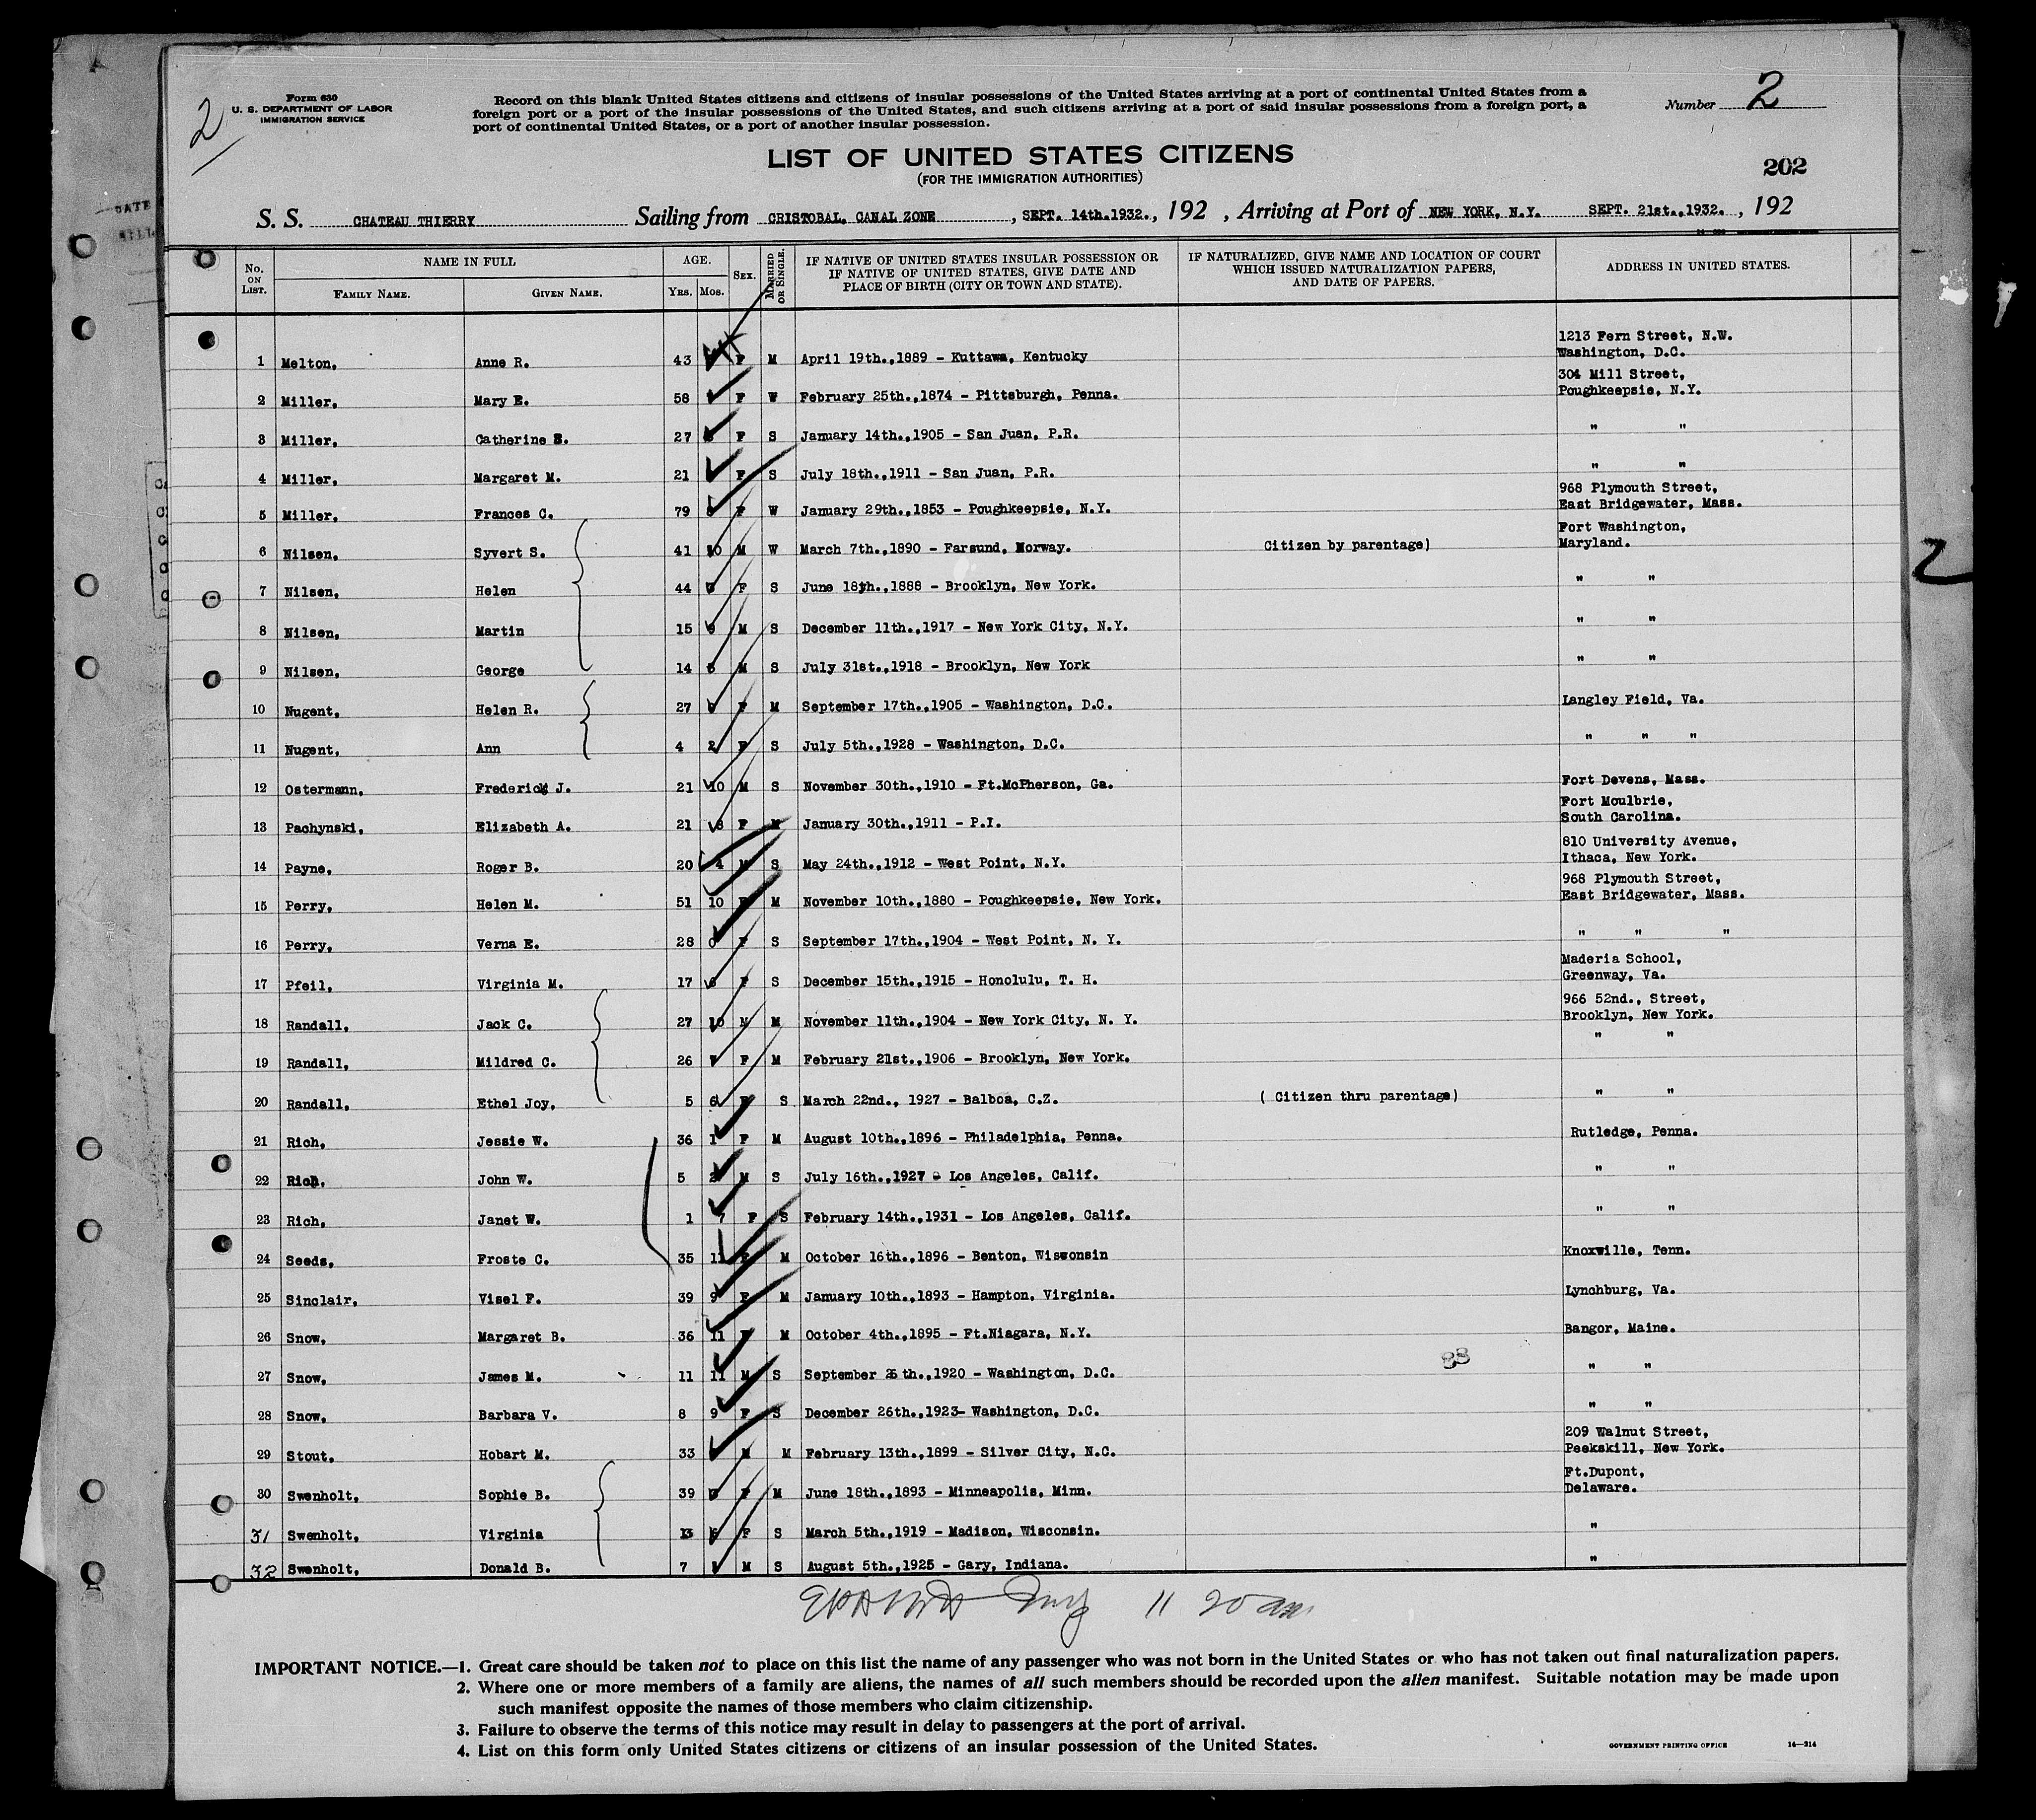 2
Form 630
U. S. DEPARTMENT OF LABOR
IMMIGRATION SERVICE
Record on this blank United States citizens and citizens of insular possessions of the United States arriving at a port of continental United States from a
foreign port or a port of the insular possessions of the United States, and such citizens arriving at a port of said insular possessions from a foreign port, a
port of continental United States, or a port of another insular possession.
Number 2
LIST OF UNITED STATES CITIZENS
(FOR THE IMMIGRATION AUTHORITIES)
202
S. S. CHATEAU THIERRY Sailing from CRISTOBAL, CANAL ZONE , SEPT. 14th.1932., 192 , Arriving at Port of NEW YORK, N.Y. SEPT. 21st.,1932. , 192
No. ON LIST. NAME IN FULL FAMILY NAME. GIVEN NAME. AGE. YRS. MOS. SEX. MARRIED OR SINGLE. IF NATIVE OF UNITED STATES INSULAR POSSESSION OR IF NATIVE OF UNITED STATES, GIVE DATE AND PLACE OF BIRTH (CITY OR TOWN AND STATE). IF NATURALIZED, GIVE NAME AND LOCATION OF COURT WHICH ISSUED NATURALIZATION PAPERS, AND DATE OF PAPERS. ADDRESS IN UNITED STATES.
1 Melton, Anne R. 43 F M April 19th.,1889 - Kuttawa, Kentucky 1213 Fern Street, N.W. Washington, D.C.
2 Miller, Mary E. 58 F W February 25th.,1874 - Pittsburgh, Penna. 304 Mill Street, Poughkeepsie, N.Y.
3 Miller, Catherine S. 27 F S January 14th.,1905 - San Juan, P.R. " "
4 Miller, Margaret M. 21 F S July 18th.,1911 - San Juan, P.R. " "
5 Miller, Frances C. 79 F W January 29th.,1853 - Poughkeepsie, N.Y. 968 Plymouth Street, East Bridgewater, Mass.
6 Nilsen, Syvert S. 41 10 M W March 7th.,1890 - Farsund, Norway. Citizen by parentage) Fort Washington, Maryland.
7 Nilsen, Helen 44 3 F S June 18th.,1888 - Brooklyn, New York. " "
8 Nilsen, Martin 15 9 M S December 11th.,1917 - New York City, N.Y. " "
9 Nilsen, George 14 M S July 31st.,1918 - Brooklyn, New York " "
10 Nugent, Helen R. 27 F M September 17th.,1905 - Washington, D.C. Langley Field, Va.
11 Nugent, Ann 4 2 F S July 5th.,1928 - Washington, D.C. " " "
12 Ostermann, Frederick J. 21 10 M S November 30th.,1910 - Ft.McPherson, Ga. Fort Devens, Mass.
13 Pachynski, Elizabeth A. 21 8 F M January 30th.,1911 - P.I. Fort Moulbrie, South Carolina.
14 Payne, Roger B. 20 4 M S May 24th.,1912 - West Point, N.Y. 810 University Avenue, Ithaca, New York.
15 Perry, Helen M. 51 10 F M November 10th.,1880 - Poughkeepsie, New York. 968 Plymouth Street, East Bridgewater, Mass.
16 Perry, Verna E. 28 0 F S September 17th.,1904 - West Point, N. Y. " " "
17 Pfeil, Virginia M. 17 F S December 15th.,1915 - Honolulu, T. H. Maderia School, Greenway, Va.
18 Randall, Jack C. 27 10 M M November 11th.,1904 - New York City, N. Y. 966 52nd., Street, Brooklyn, New York.
19 Randall, Mildred C. 26 F M February 21st.,1906 - Brooklyn, New York. " "
20 Randall, Ethel Joy, 5 6 F S March 22nd., 1927 - Balboa, C.Z. ( Citizen thru parentage) " "
21 Rich, Jessie W. 36 1 F M August 10th.,1896 - Philadelphia, Penna. Rutledge, Penna.
22 Rich, John W. 5 2 M S July 16th.,1927 - Los Angeles, Calif. " "
23 Rich, Janet W. 1 7 F S February 14th.,1931 - Los Angeles, Calif. " "
24 Seeds, Froste C. 35 11 F M October 16th.,1896 - Benton, Wisconsin Knoxville, Tenn.
25 Sinclair, Visel F. 39 9 F M January 10th.,1893 - Hampton, Virginia. Lynchburg, Va.
26 Snow, Margaret B. 36 11 F M October 4th.,1895 - Ft.Niagara, N.Y. Bangor, Maine.
27 Snow, James M. 11 11 M S September th.,1920 - Washington, D.C. " "
28 Snow, Barbara V. 8 9 F S December 26th.,1923- Washington, D.C. " "
29 Stout, Hobart M. 33 M M February 13th.,1899 - Silver City, N.C. 209 Walnut Street, Peekskill, New York.
30 Swenholt, Sophie B. 39 3 F M June 18th.,1893 - Minneapolis, Minn. Ft.Dupont, Delaware.
31 Swenholt, Virginia 13 6 F S March 5th.,1919 - Madison, Wisconsin. "
32 Swenholt, Donald B. 7 M S August 5th.,1925 - Gary, Indiana. "
11 20 am
IMPORTANT NOTICE.—1. Great care should be taken not to place on this list the name of any passenger who was not born in the United States or who has not taken out final naturalization papers.
2. Where one or more members of a family are aliens, the names of all such members should be recorded upon the alien manifest. Suitable notation may be made upon
such manifest opposite the names of those members who claim citizenship.
3. Failure to observe the terms of this notice may result in delay to passengers at the port of arrival.
4. List on this form only United States citizens or citizens of an insular possession of the United States.
GOVERNMENT PRINTING OFFICE 14—214
2